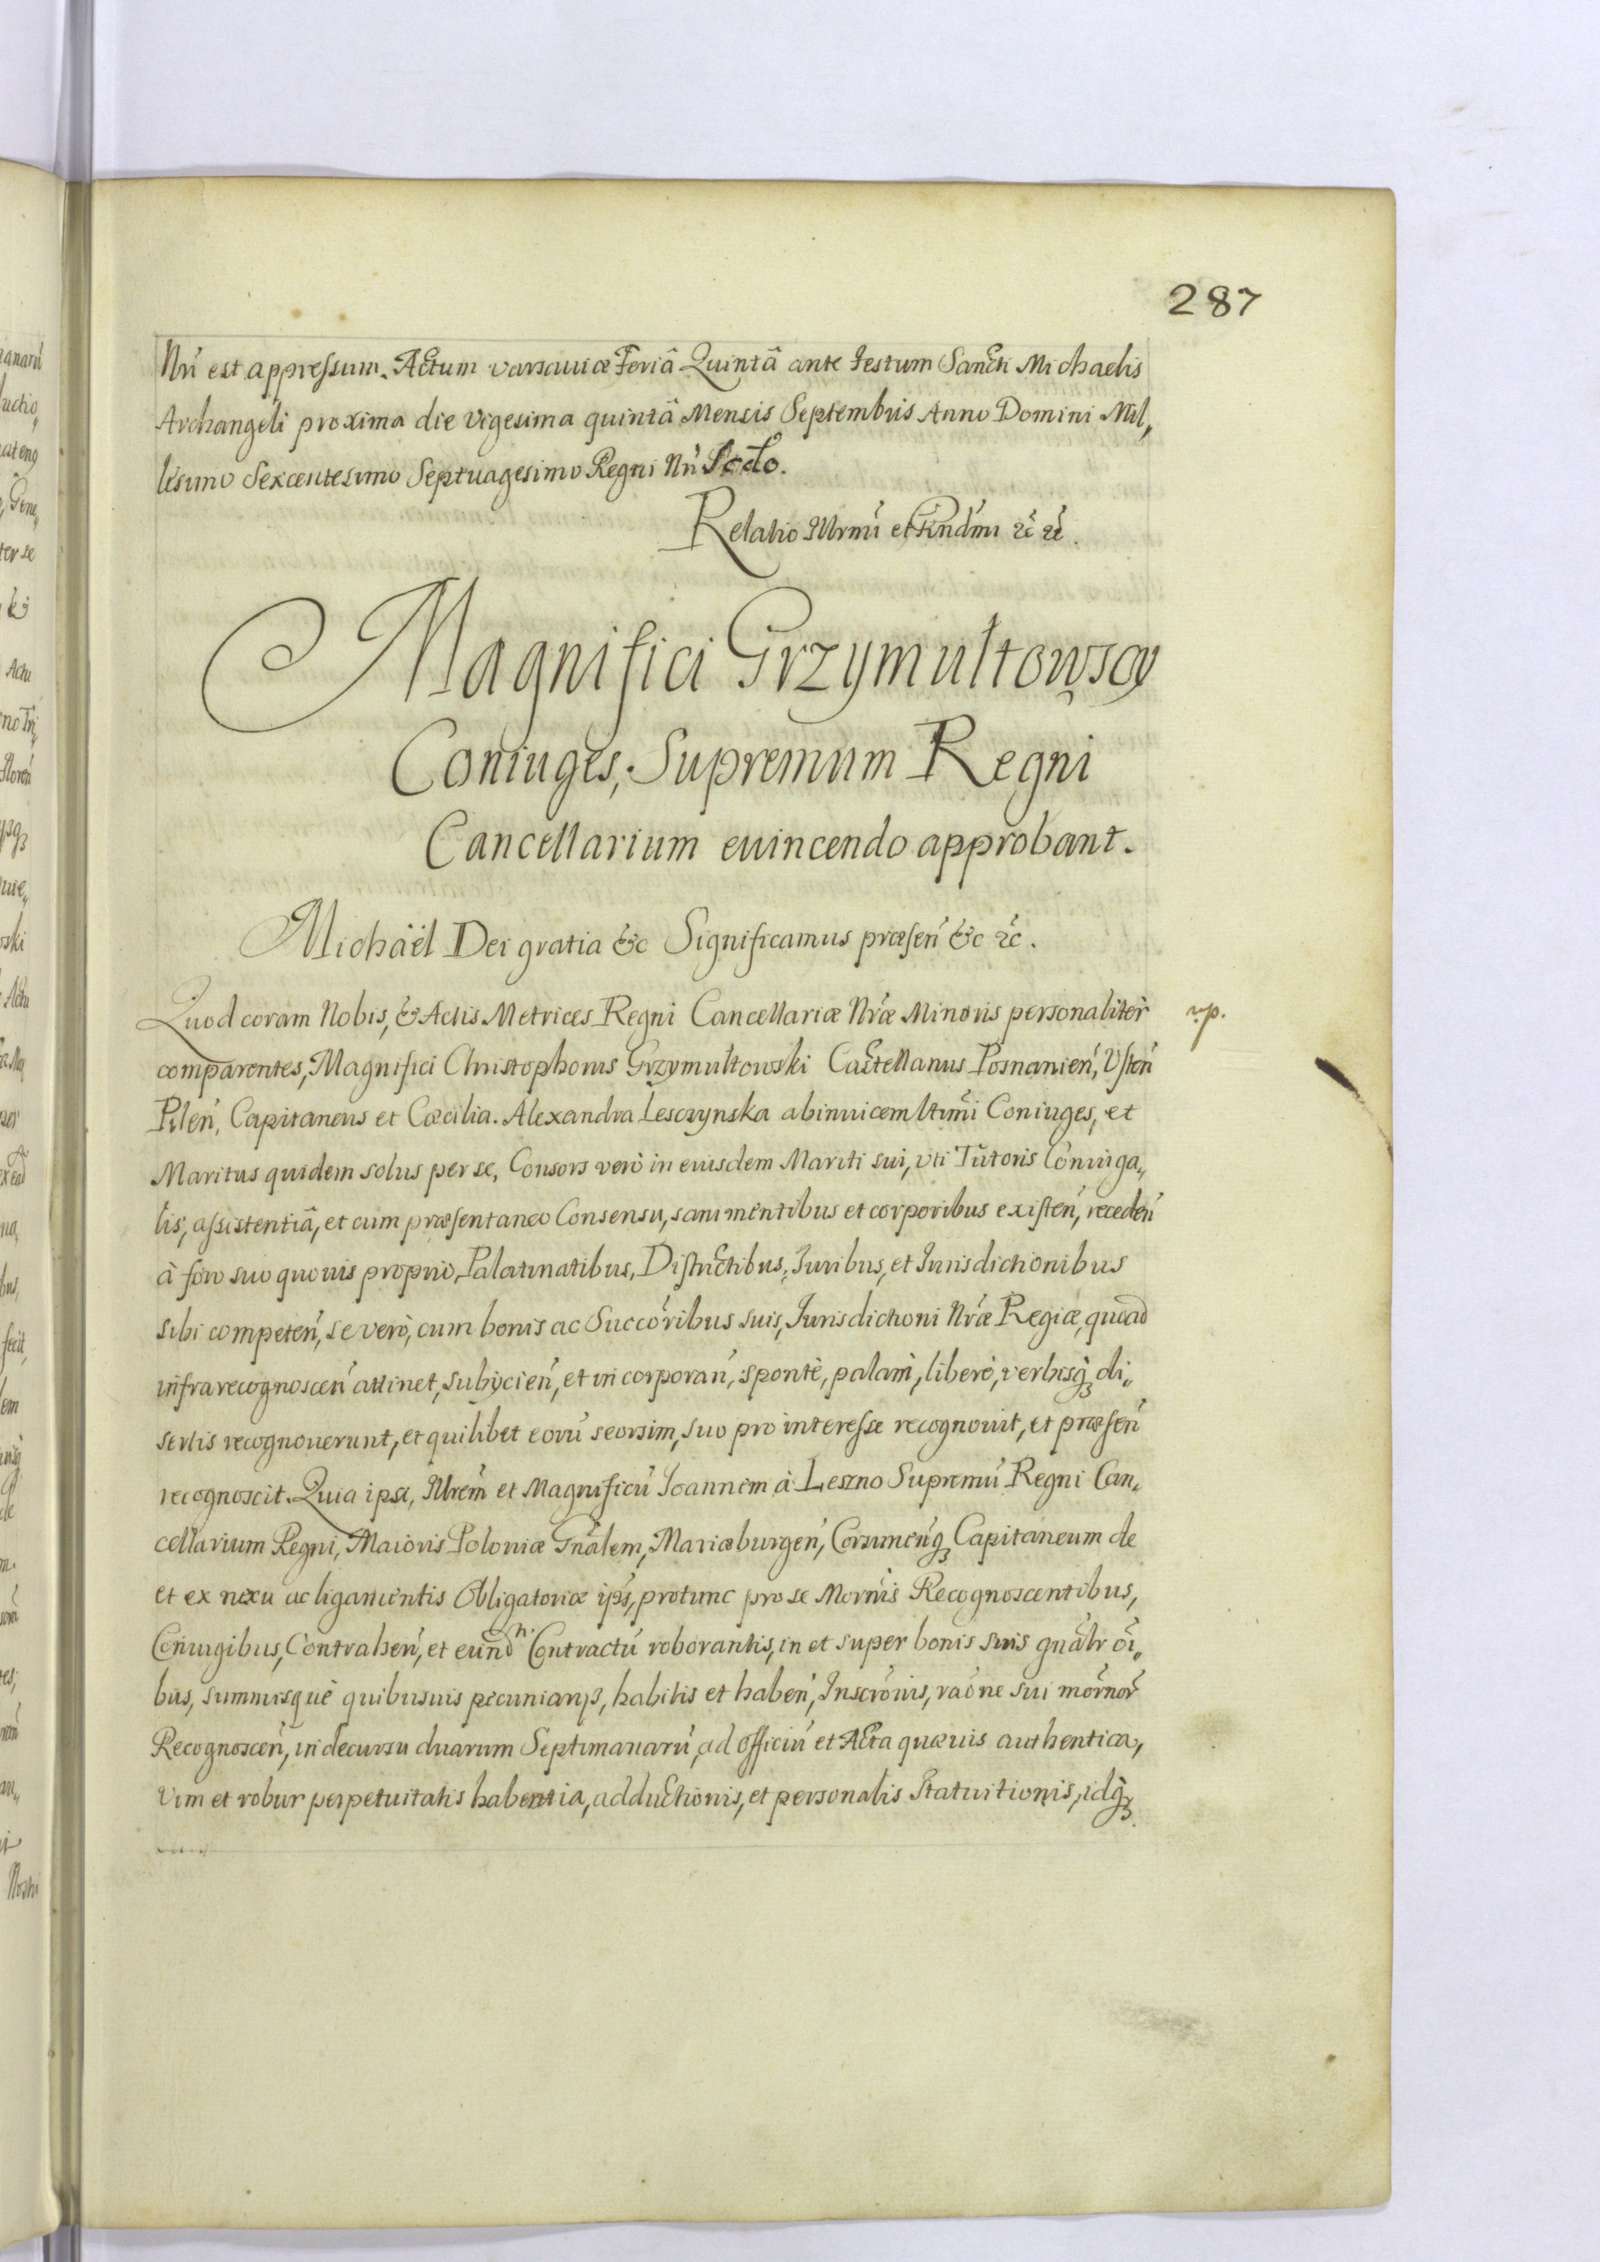 287
Nrĩ est appressum. Actum varsauiæ Feriâ Quintâ ante Festum Sancti Michaelis
Archangeli proxima die vigesima quintâ Mensis Septembris Anno Domini Mil„
lesimo Sexcentesimo Septuagesimo Regni Nrĩ
Relatio Illrmi et Rndmi &c &c.
Magnifici Grzymułtowscy
Coniuges, Supremum Regni
Cancellarium euincendo approbant.
Michaël Dei gratia &c Significamus præsen̄ &c &c.
Quod coram Nobis, & Actis Metrices Regni Cancellariæ Nræ Minoris personalitèr
comparentes, Magnifici Christophorus Grzymułtowski Castellanus Posnanien̄, Usten̄
Pilen̄, Capitaneus et Cæcilia Alexandra Lesczynska abinuicem ltimi Coniuges, et
Maritus quidem solus per se, Consors verò in eiusdem Mariti sui, vti Tutoris Coniuga„
lis, assistentiâ, et cum præsentaneo Consensu, sani mentibus et corporibus existen̄, receden̄
à foro suo quouis proprio, Palatinatibus, Districtibus, Iuribus, et Iurisdictionibus
sibi competen̄, se verò, cum bonis ac Succoribus suis, Jurisdictioni Nræ Regiæ, quoad
infrarecognoscen̄ attinet, subijcien̄, et incorporan̄, spontè, palàm, liberè, verbisq̃ di„
sertis recognouerunt, et quilibet eorũ seorsim, suo pro interesse recognouit, et præsen̄
recognoscit. Quia ipsi, Illrem et Magnificũ Ioannem à Leszno Supremũ Regni Can„
cellarium Regni, Maioris Poloniæ Gnãlem, Mariæburgen̄, Corsunenq̃ Capitaneum de
et ex nexu ac ligamentis Obligatoriæ ips, protunc pro se Mornis Recognoscentibus,
Coniugibus, Contrahen̄, et eund̃ Contractũ roborantis, in et super bonis suis gnãlr oĩ„
bus, summisquè quibusuis pecuniarijs, habitis et haben̄, Inscronis, raõne sui mornor
Recognoscen̄, in decursu duarum Septimanarũ, ad officiũ et Acta quæuis authentica,
vim et robur perpetuitatis habentia, adductionis, et personalis Statuitionis, idq̃